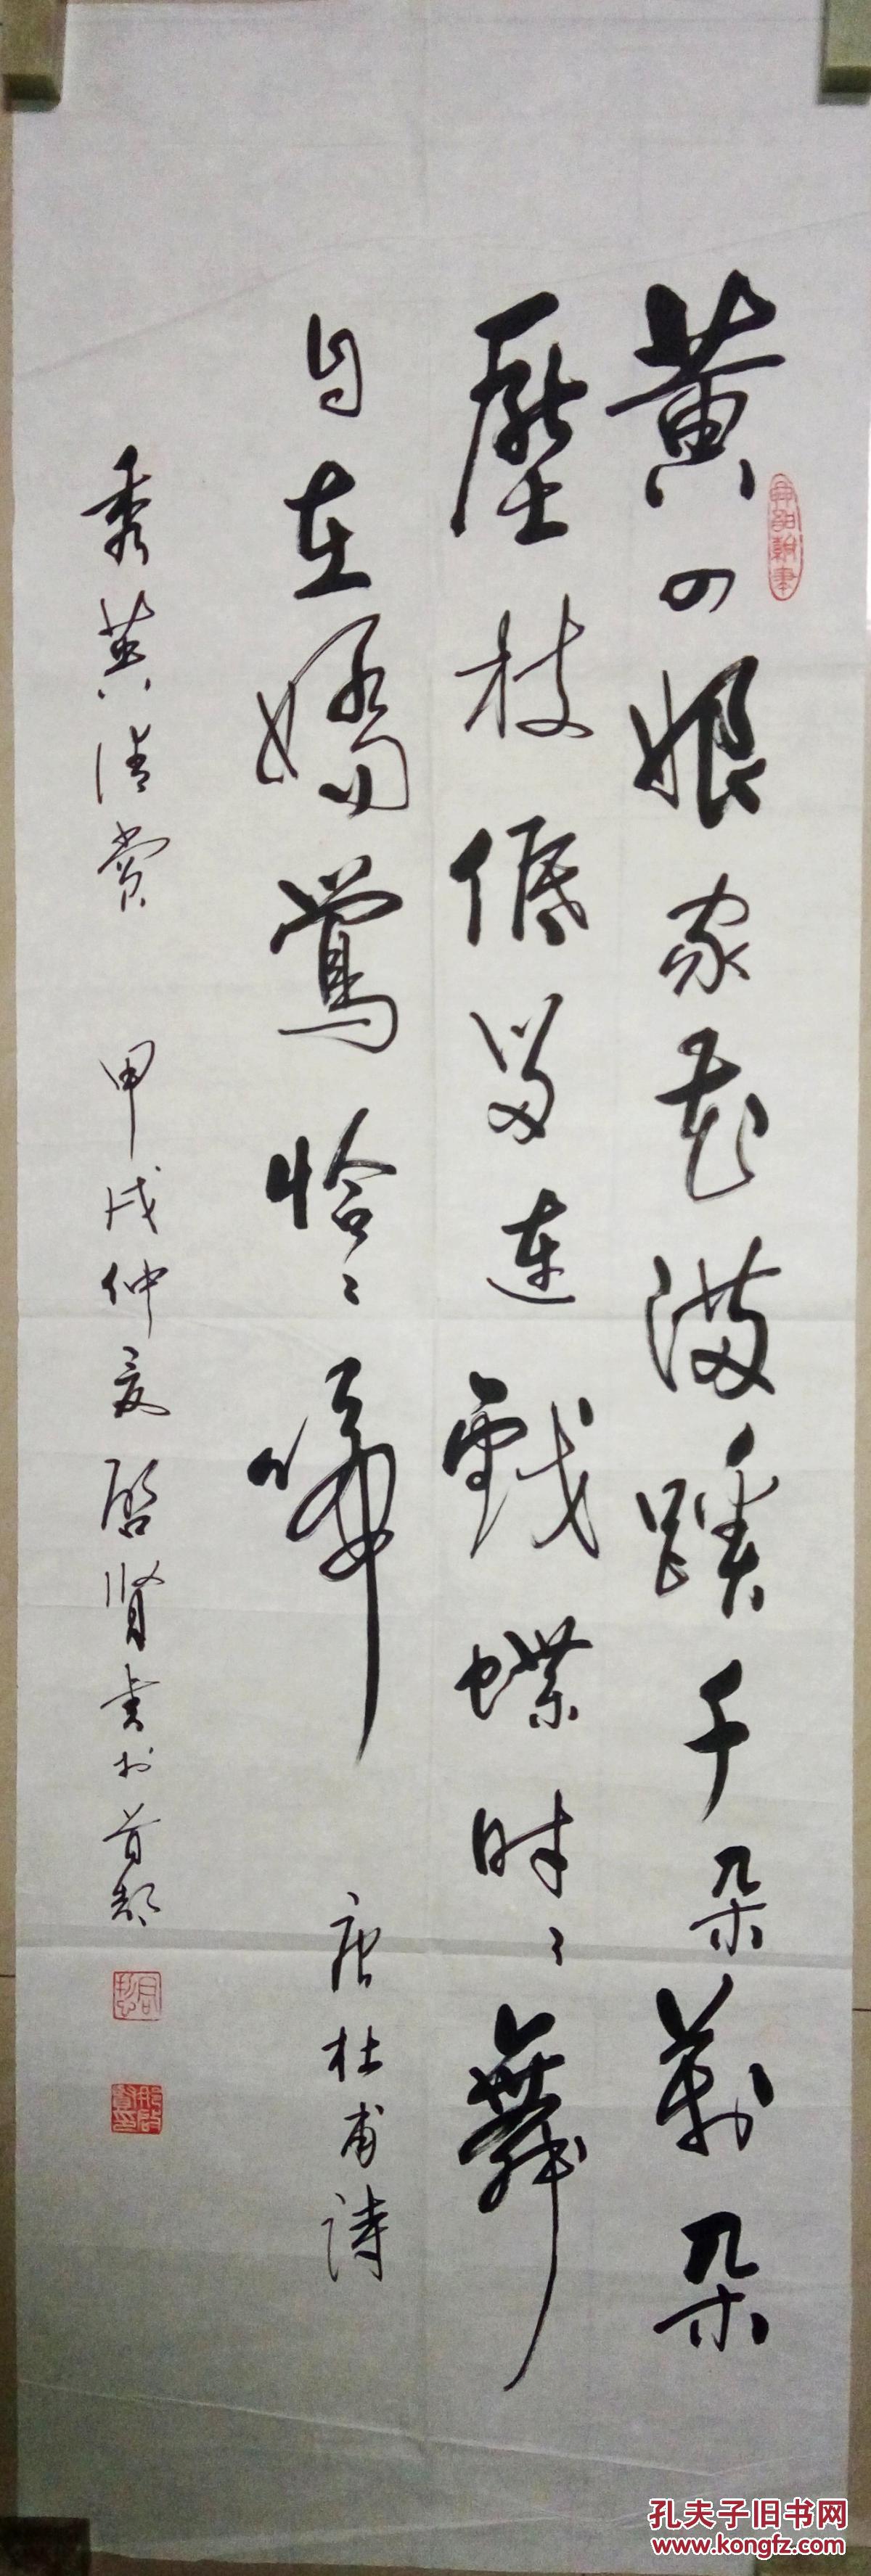 黄四娘家花满蹊千朵萬朵
壓枝低留連戲蝶时〻舞
自在嬌鶯恰〻啼 唐杜甫詩
秀英清赏 甲戌仲夏启贤书於首都
孔夫子旧书网
www.kongfz.com